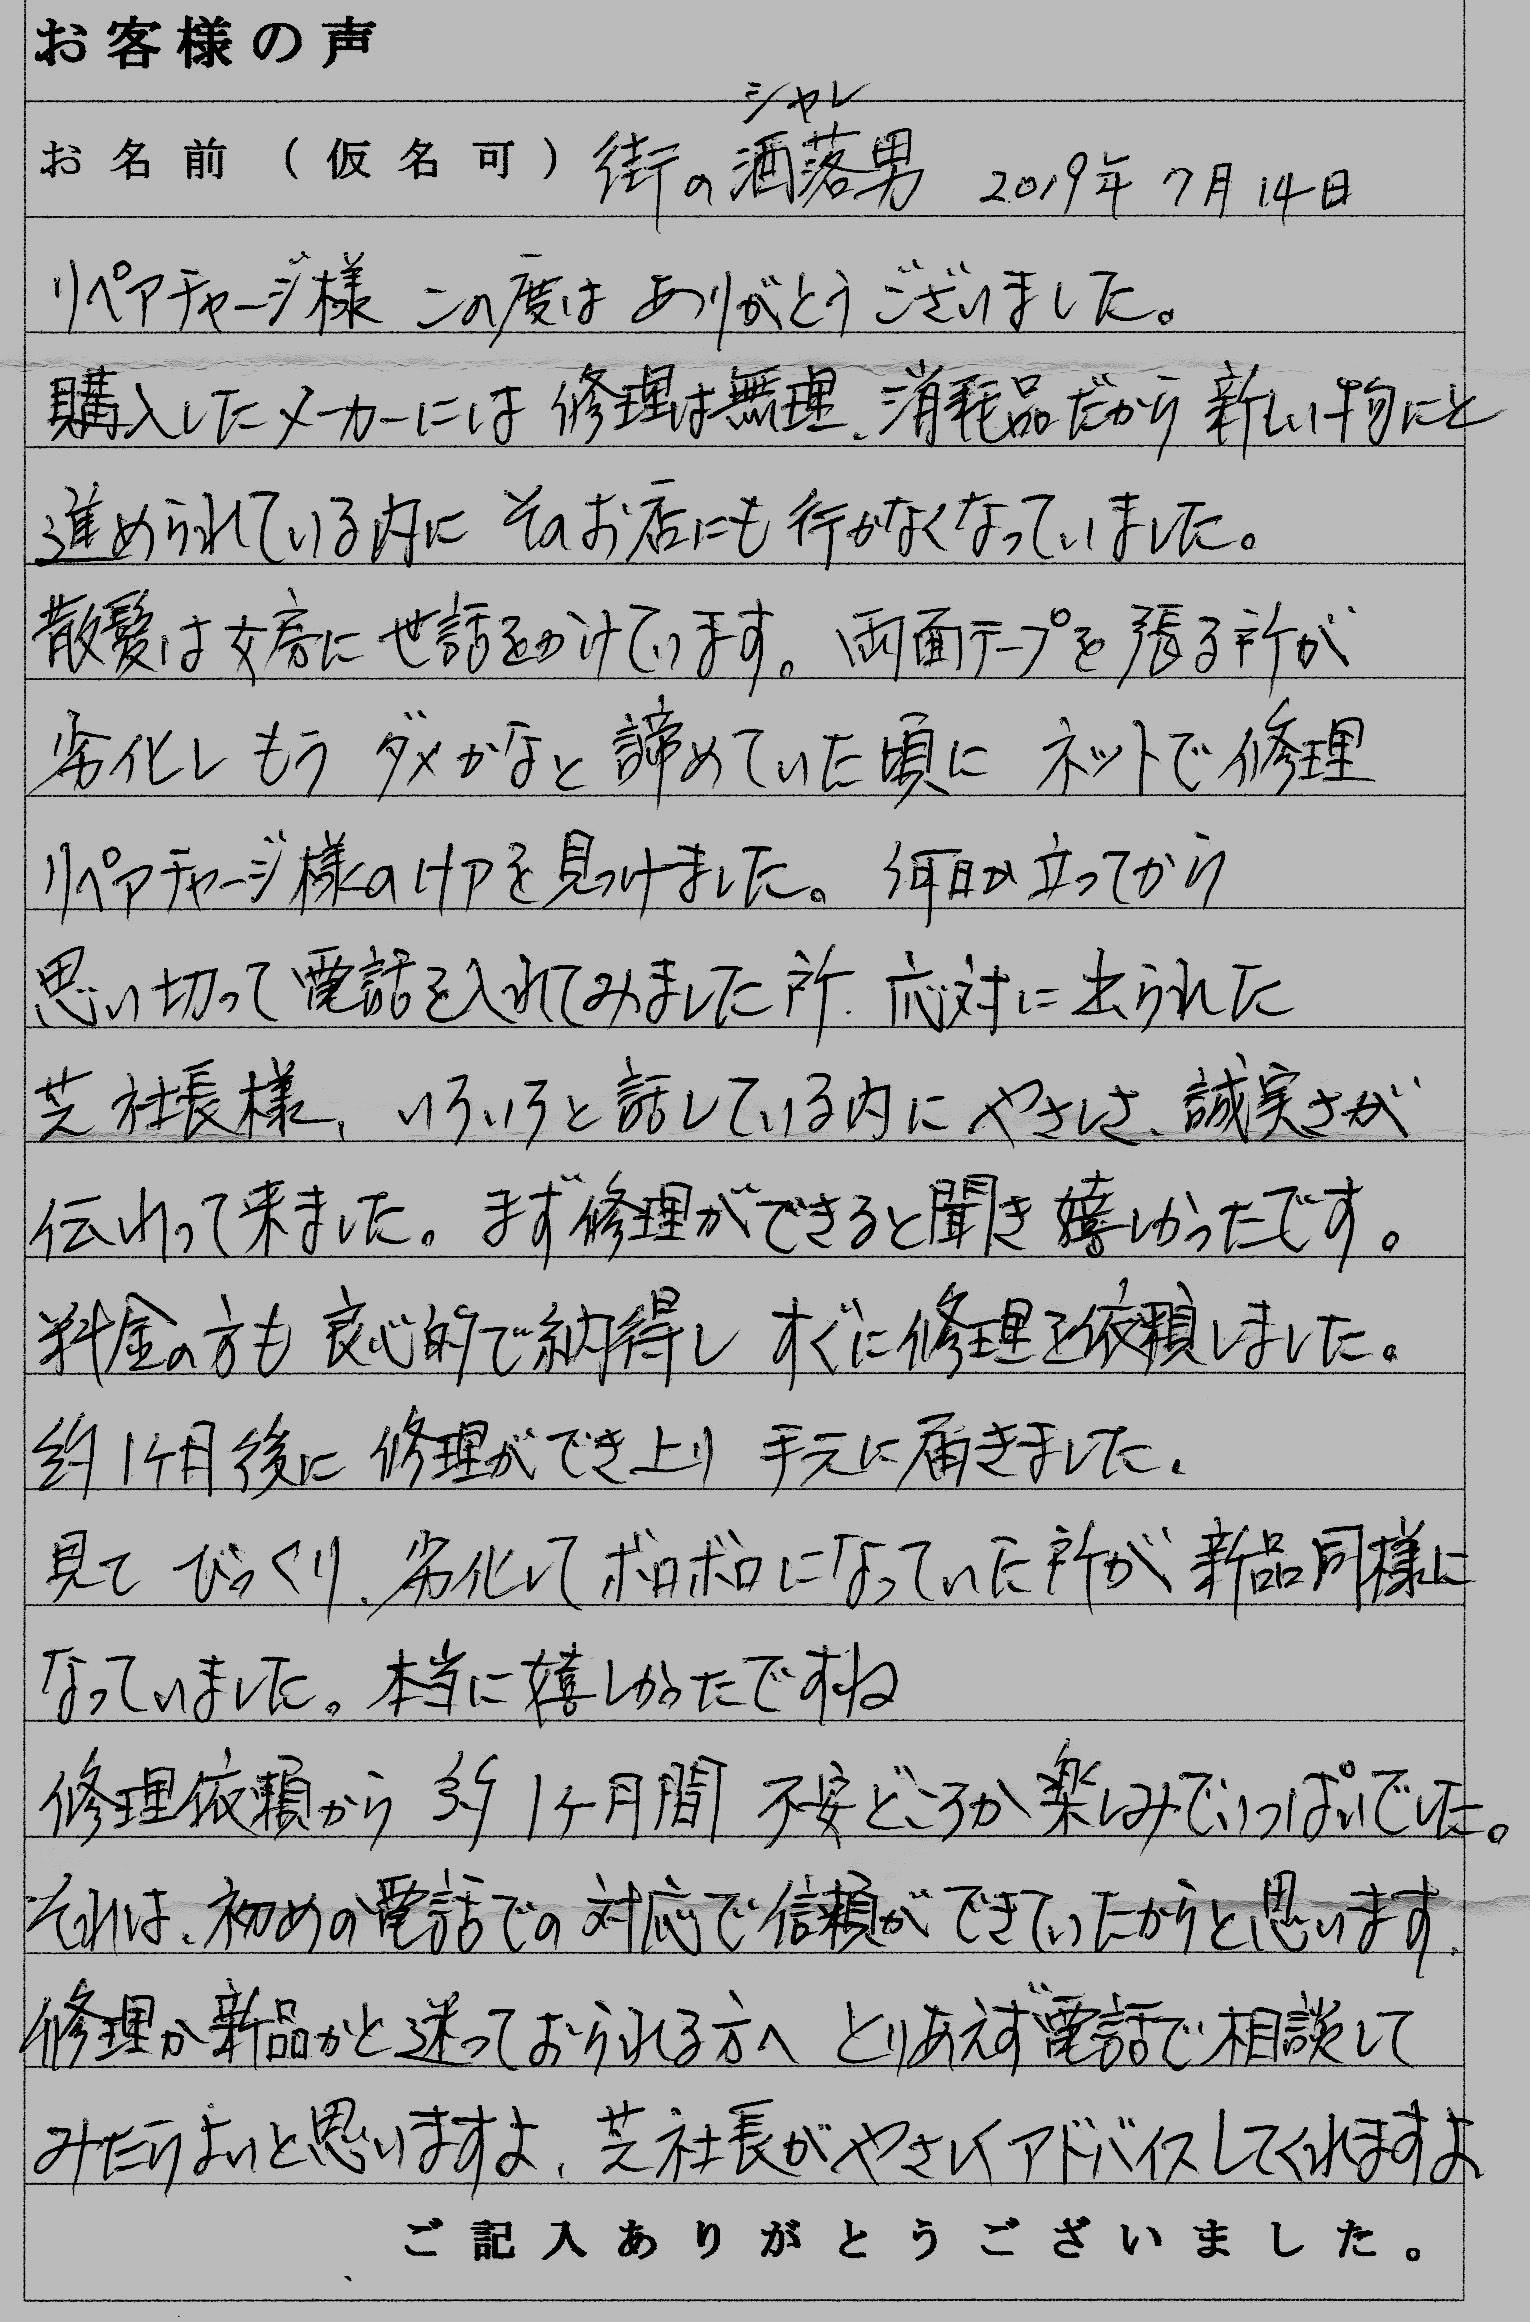 お客様の声
シャレ
お名前(仮名可) 街の洒落男 2019年7月14日
リペアチャージ様 この度は ありがとうございました。
購入したメーカーには 修理は無理、消耗品だから 新しい物にと
進められている内に そのお店にも行かなくなっていました。
散髪は女房に世話をかけています。両面テープを張る所が
劣化し もう ダメかなと 諦めていた頃に ネットで修理
リペアチャージ様のHPを見つけました。何日か立ってから
思い切って電話を入れてみました所、応対に出られた
芝社長様、いろいろと話している内に やさしさ、誠実さが
伝わって来ました。まず修理ができると聞き 嬉しかったです。
料金の方も良心的で納得し すぐに修理を依頼しました。
約1ケ月後に 修理ができ上り 手元に届きました。
見て びっくり、劣化してボロボロになっていた所が 新品同様に
なっていました。本当に嬉しかったですね
修理依頼から 約1ケ月間 不安どころか楽しみでいっぱいでした。
それは、初めの電話での対応で信頼ができていたからと思います。
修理か新品かと迷っておられる方へ とりあえず電話で相談して
みたらよいと思いますよ、芝社長がやさしくアドバイスしてくれますよ
ご記入ありがとうございました。